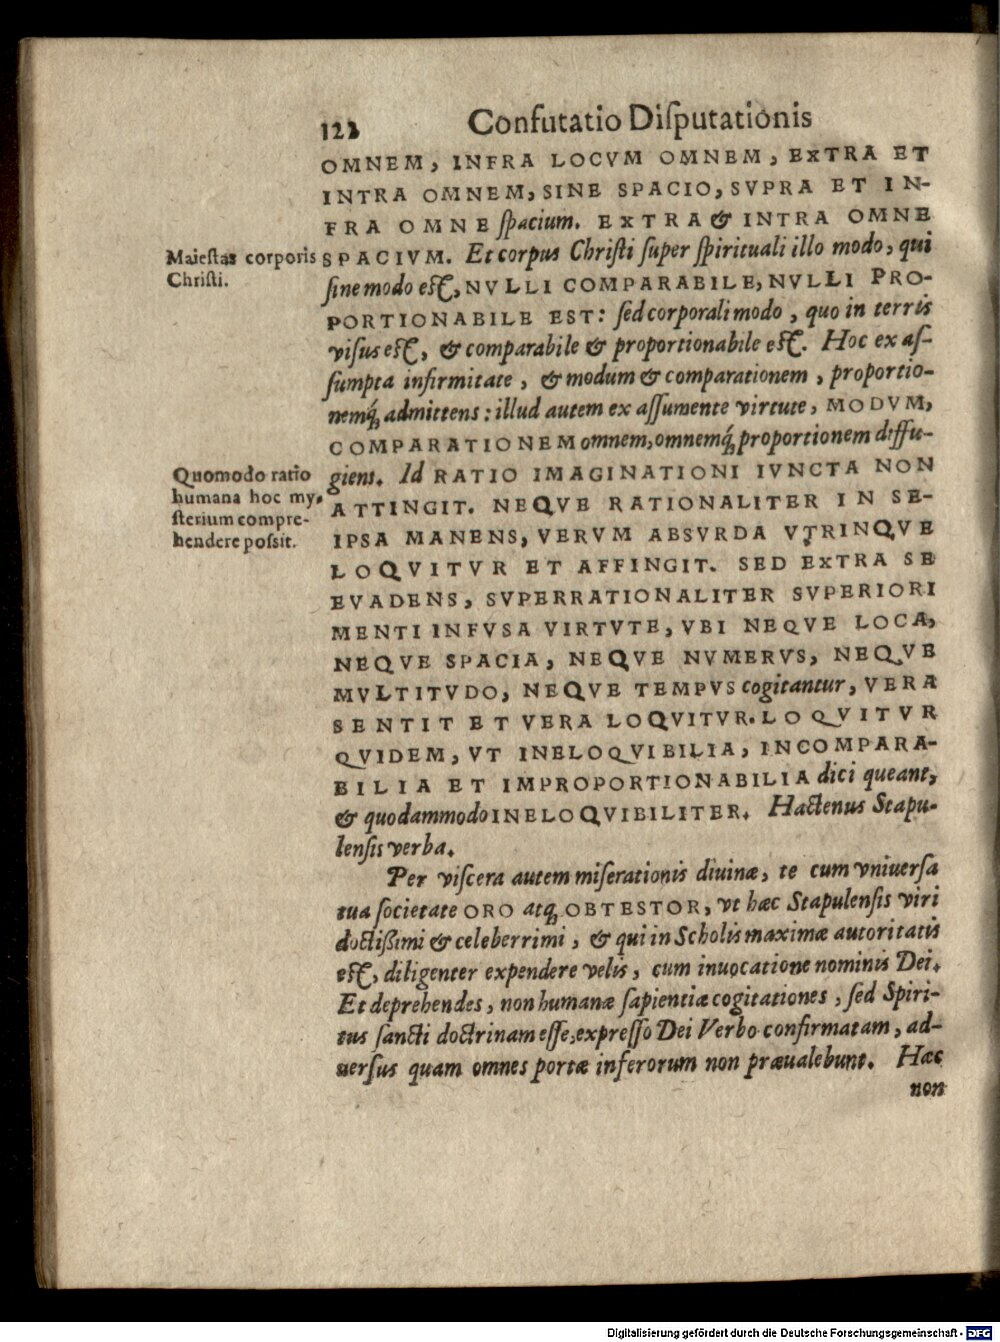 122 Confutatio Diſputationis
OMNEM, INFRA LOCVM OMNEM, EXTRA ET
INTRA OMNEM, SINE SPACIO, SVPRA ET IN-
FRA OMNE ſpacium. EXTRA & INTRA OMNE
Maieſtas corporis
Chriſti.
SPACIVM. Et corpus Chriſti ſuper ſpirituali illo modo, qui
ſine modo eſt, NVLLI COMPARABILE, NVLLI PRO-
PORTIONABILE EST: ſed corporali modo, quo in terris
viſus eſt, & comparabile & proportionabile eſt. Hoc ex aſ-
ſumpta infirmitate, & modum & comparationem, proportio-
nemq́; admittens: illud autem ex aſſumente virtute, MODVM,
COMPARATIONEM omnem, omnemq́; proportionem diffu-
Quomodo ratio
humana hoc my-
ſterium compre-
hendere poſsit.
giens. Id RATIO IMAGINATIONI IVNCTA NON
ATTINGIT. NEQVE RATIONALITER IN SE-
IPSA MANENS, VERVM ABSVRDA VTRINQVE
LOQVITVR ET AFFINGIT. SED EXTRA SE
EVADENS, SVPERRATIONALITER SVPERIORI
MENTI INFVSA VIRTVTE, VBI NEQVE LOCA,
NEQVE SPACIA, NEQVE NVMERVS, NEQVE
MVLTITVDO, NEQVE TEMPVS cogitantur, VERA
SENTIT ET VERA LOQVITVR. LOQVITVR
QVIDEM, VT INELOQVIBILIA, INCOMPARA-
BILIA ET IMPROPORTIONABILIA dici queant,
& quodammodo INELOQVIBILITER. Hactenus Stapu-
lenſis verba.
Per viſcera autem miſerationis diuinæ, te cum vniuerſa
tua ſocietate ORO atq; OBTESTOR, vt hæc Stapulenſis viri
doctißimi & celeberrimi, & qui in Scholis maximæ autoritatis
eſt, diligenter expendere velis, cum inuocatione nominis Dei.
Et deprehendes, non humanæ ſapientiæ cogitationes, ſed Spiri-
tus ſancti doctrinam eſſe, expreſſo Dei Verbo confirmatam, ad-
uerſus quam omnes portæ inferorum non præualebunt. Hæc
non
Digitalisierung gefördert durch die Deutsche Forschungsgemeinschaft - DFG